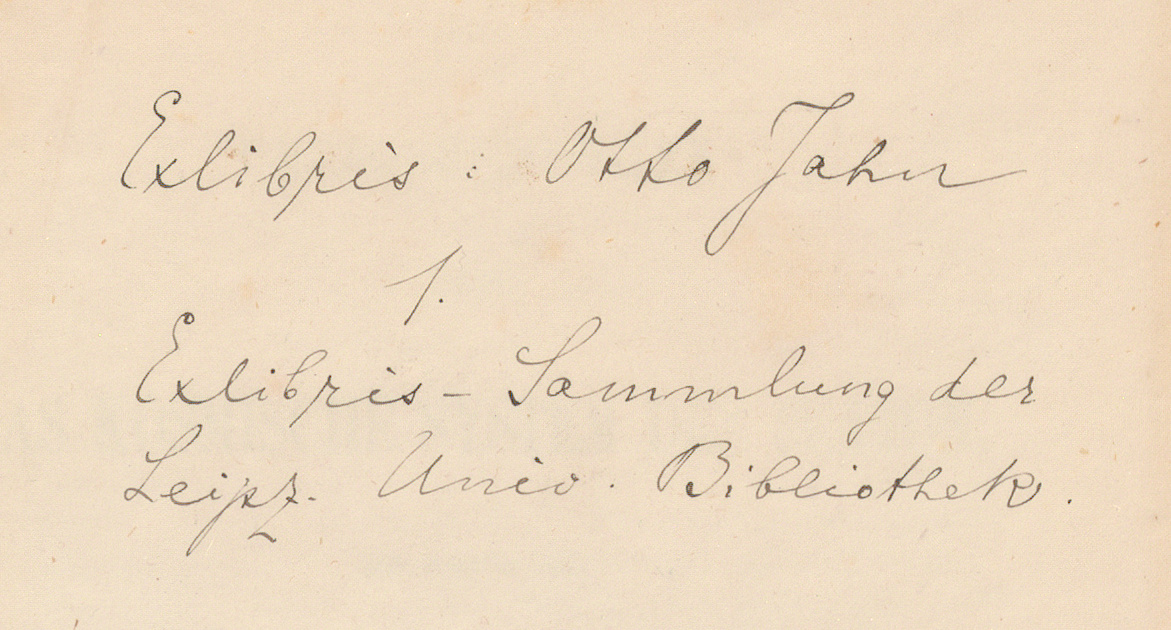 Exlibris : Otto Jahn
1.
Exlibris - Sammlung der
Leipz. Univ. Bibliothek.